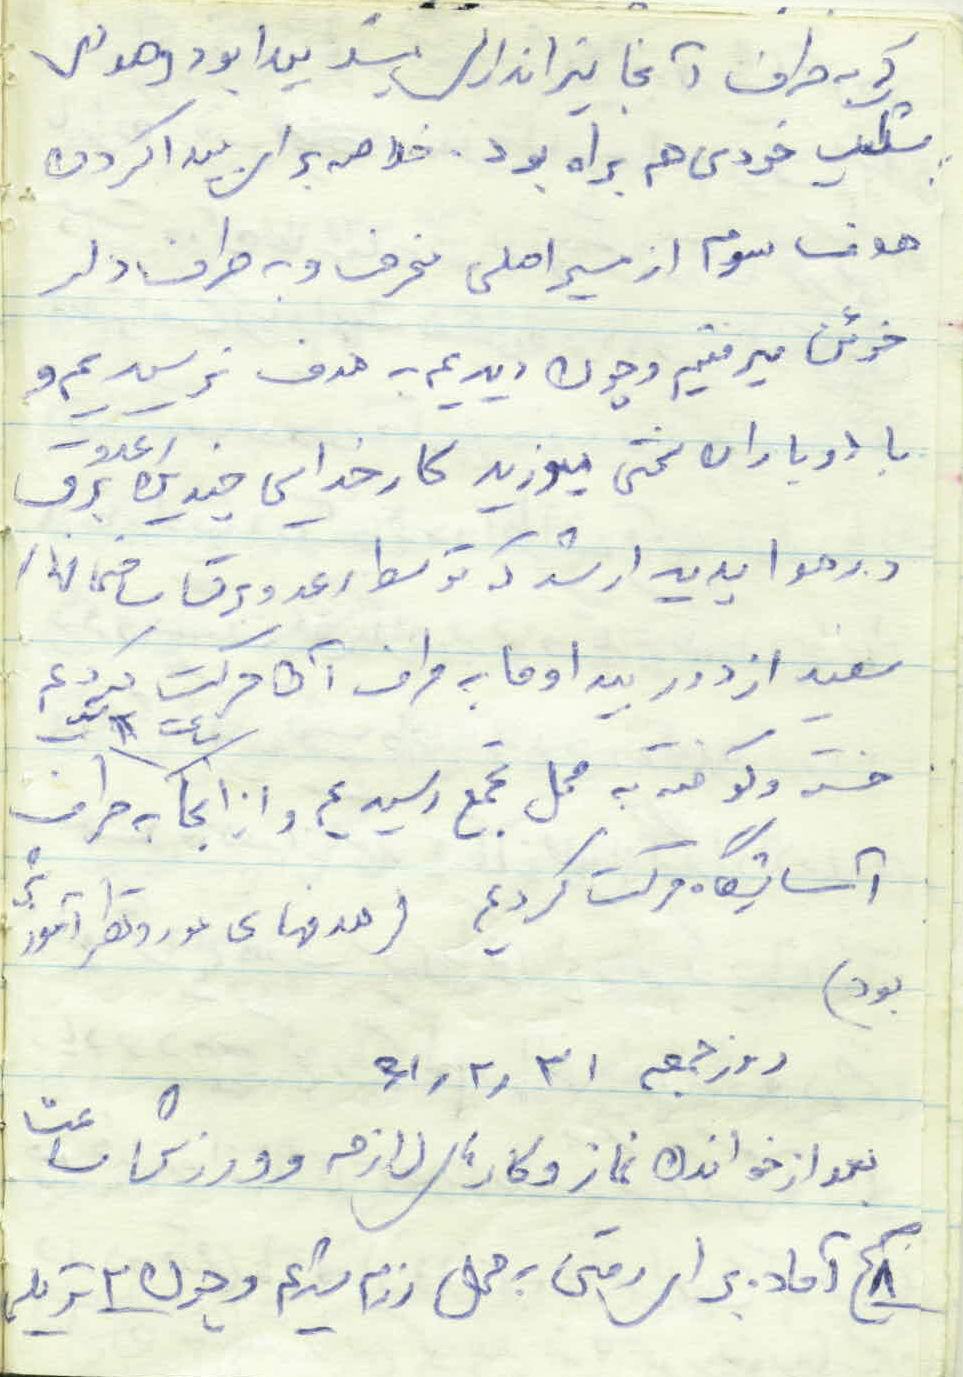 که به طرف آنجا تیراندازی شدید بود و هوای
خودی هم براه بود. خلاصه برای پیدا کردن
هدف سوم از مسیر اصلی منحرف و به طرف
میرفتیم و چون دیدیم به هدف نرسیدیم و
باد و باران سختی میوزید کار خدایی چندین رعد و برق
در هوا پدیدار شد که توسط رعد و برق ساختمانهای
سفید از دور پیدا و ما به طرف آن حرکت کردیم
خسته و کوفته به محل تجمع رسیدیم و از آنجا به طرف
ساعت
آسایشگاه حرکت کردیم (هدفهای مورد نظر آموزشی
بود)
روز جمعه ۳۱ ر ۲ ر ۶۱
بعد از خواندن نماز و کارهای لازمه و ورزش ساعت
۸ آماده برای رفتن به محل رزم شدیم و چون ۲